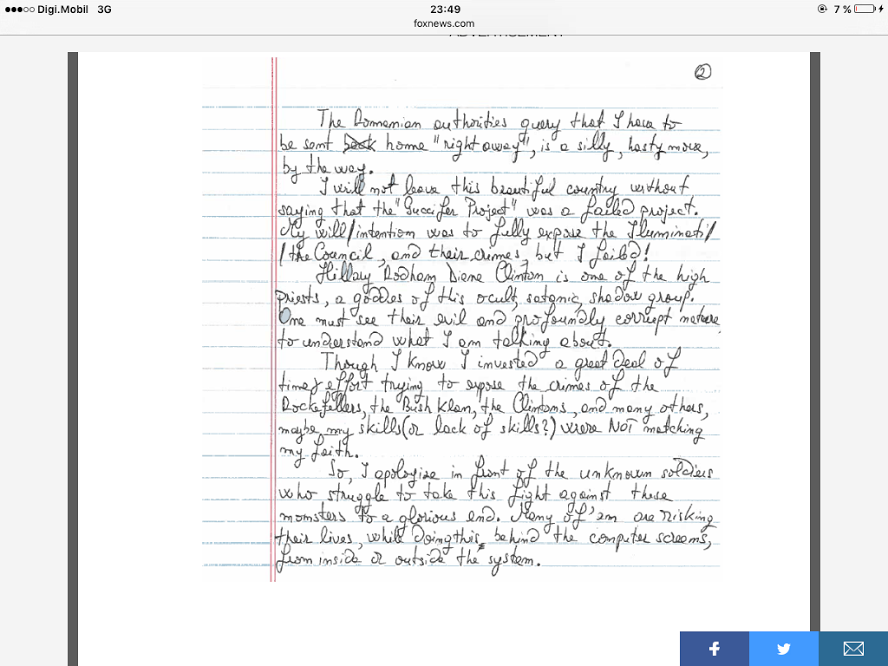 Digi.Mobil 3G
23:49
7 %
foxnews.com
ADVERTISEMENT
2
The Romanian authorities query that I have to
be sent back home "right away", is a silly, hasty move,
by the way.
I will not leave this beautiful country without
saying that the "Guccifer Project" was a failed project.
My will/intention was to fully expose the Iluminati/
/the Council, and their crimes, but I failed!
Hillary Rodham Diane Clinton is one of the high
priests, a goddes of this ocult, satanic, shadow group.
One must see their evil and profoundly corrupt nature
to understand what I am talking about.
Though I know I invested a great deal of
time & effort trying to expose the crimes of the
Rockefellers, the Bush Klan, the Clintons, and many others,
maybe my skills (or lack of skills?) were NOT matching
my faith.
So, I apologize in front of the unknown soldiers
who struggle to take this fight against these
monsters to a glorious end. Many of 'em are risking
their lives, while doing this, behind the computer screens,
from inside or outside the system.
f